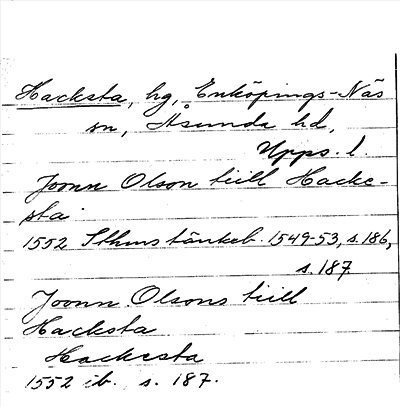 Hacksta, hg, Enköpings-Näs
sn, Åsunda hd,
Upps. l.
Joonn Olson tiill Hacke-
sta
1552 Sthms tänkeb. 1549-53, s. 186,
s. 187
Joonn Olsons tiill
Hacksta
Hackesta
1552 ib. s. 187.